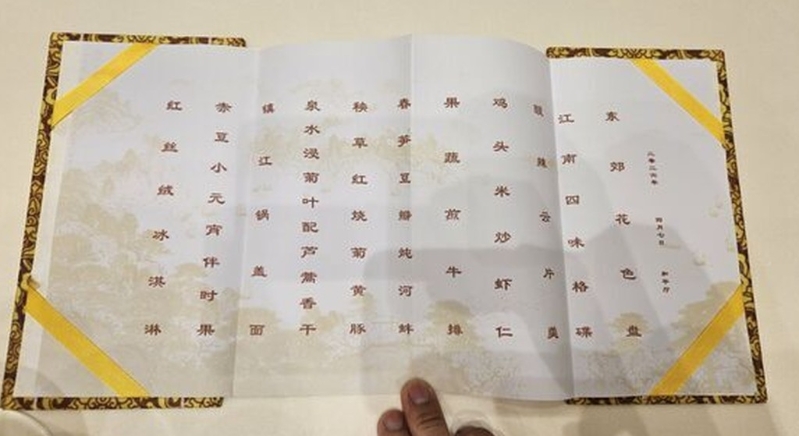 二零二六年 四月七日 和平厅
东郊花色盘
江南四味格碟
酸辣云片羹
鸡头米炒虾仁
果蔬煎牛排
春笋豆瓣炖河蚌
秧草红烧菊黄豚
泉水浸菊叶配芦蒿香干
镇江锅盖面
赤豆小元宵伴时果
红丝绒冰淇淋